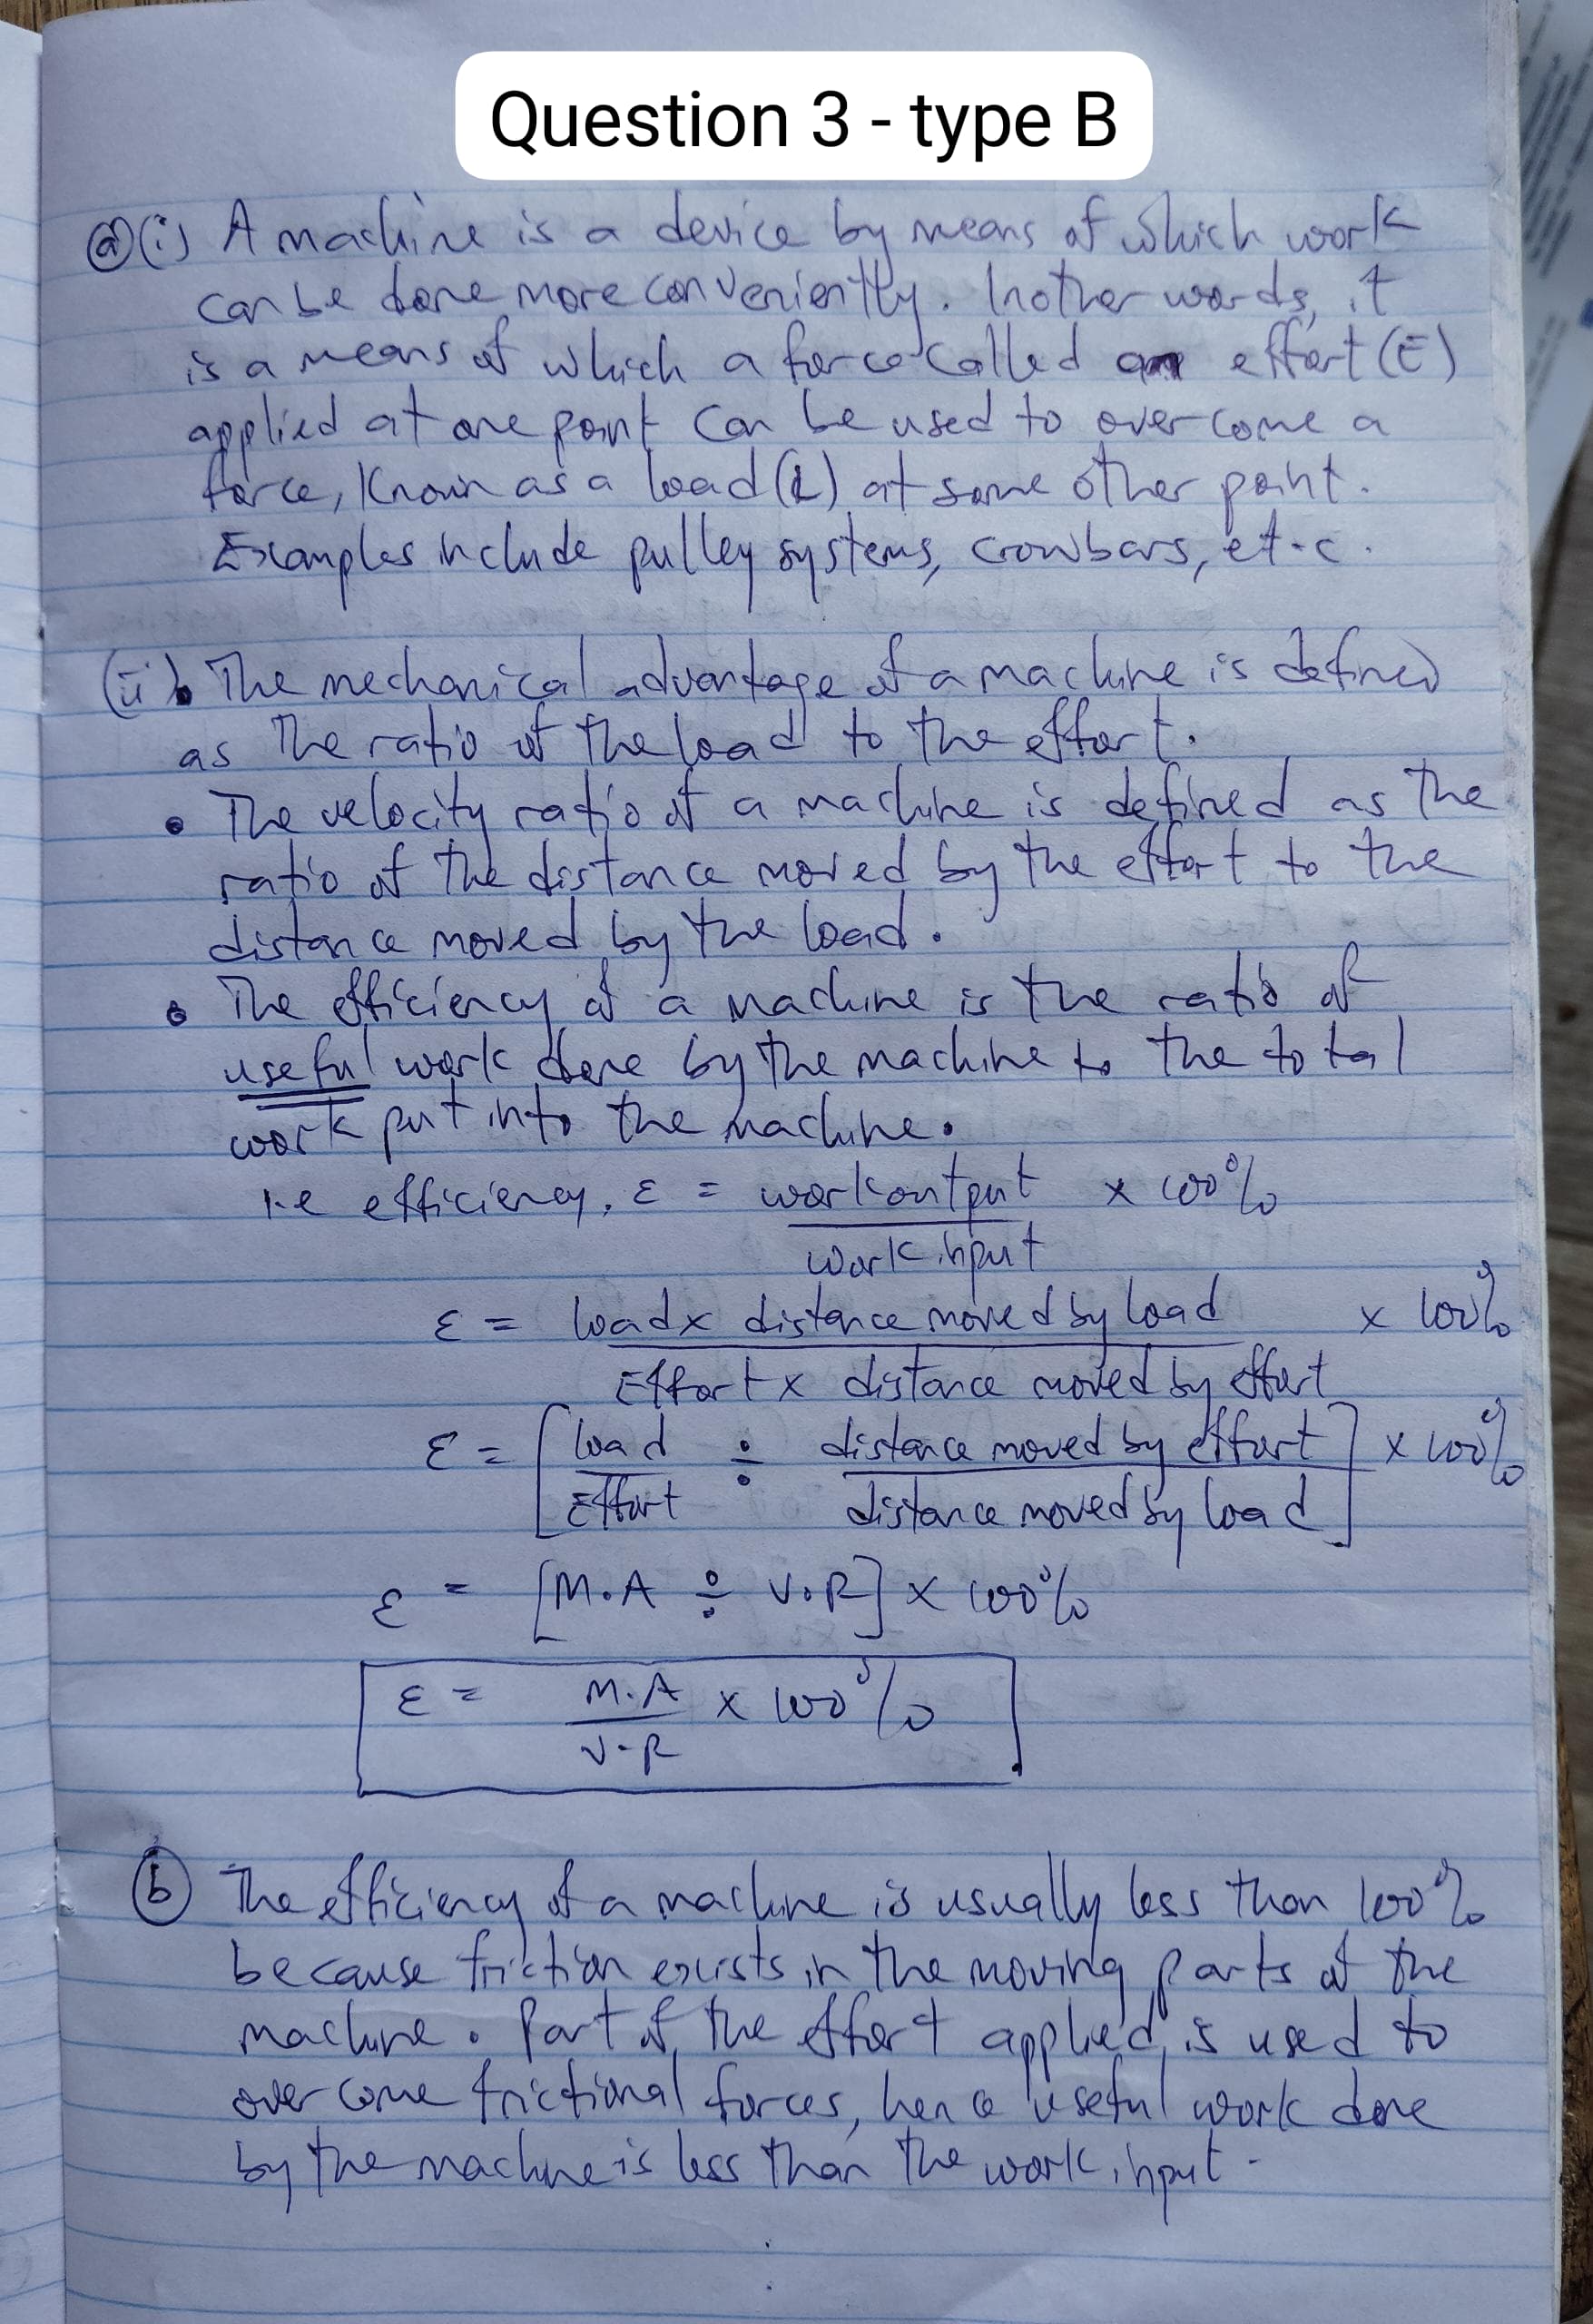 Question 3 - type B
(a)(i) A machine is a device by means of which work
can be done more conveniently. In other words, it
is a means of which a force called an effort (E)
applied at one point can be used to overcome a
force, known as a load (L) at some other point.
Examples include pulley systems, crowbars, et.c.
(ii). The mechanical advantage of a machine is defined
as the ratio of the load to the effort.
• The velocity ratio of a machine is defined as the
ratio of the distance moved by the effort to the
distance moved by the load.
• The efficiency of a machine is the ratio of
useful work done by the machine to the total
work put into the machine.
i.e efficiency, ε = work output × 100%
work input
ε = load × distance moved by load × 100%
Effort × distance moved by effort
ε = [load ÷ distance moved by effort] × 100%
Effort distance moved by load
ε = [M.A ÷ V.R] × 100%
ε = M.A × 100%
V.R
(b) The efficiency of a machine is usually less than 100%
because friction exists in the moving parts of the
machine. Part of the effort applied is used to
overcome frictional forces, hence useful work done
by the machine is less than the work input.